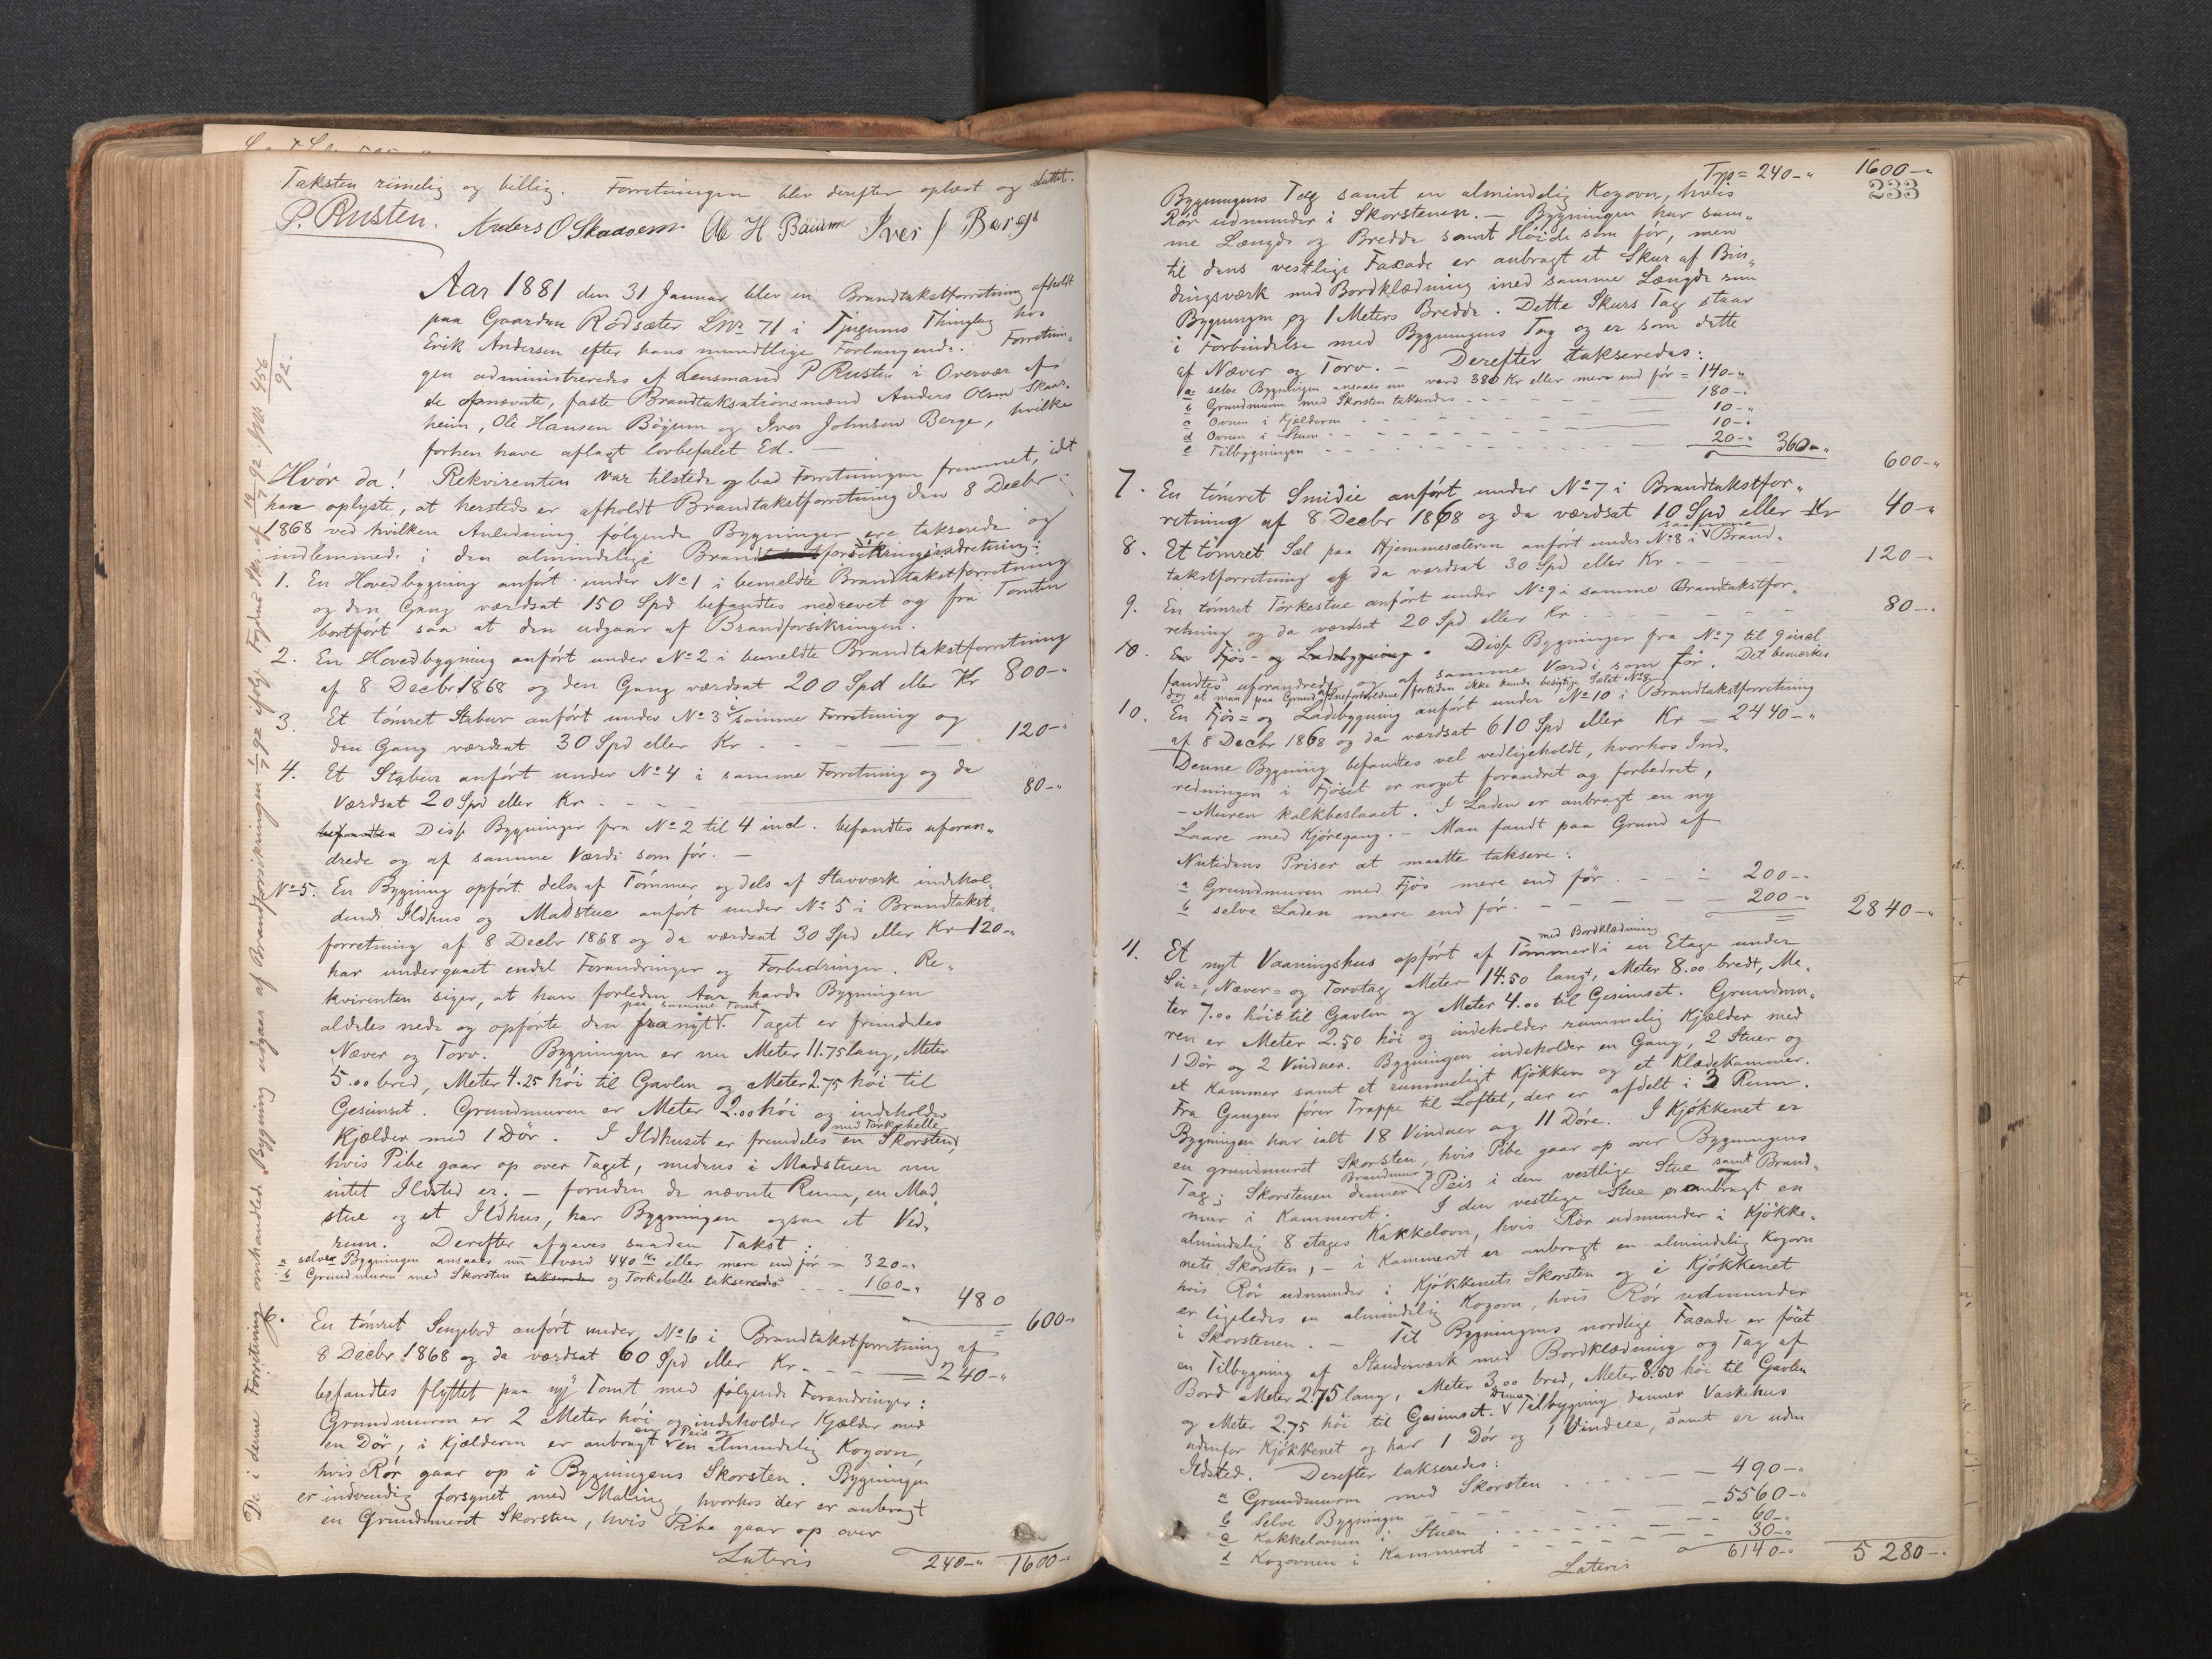 Taksten rimelig og billig. Forretningen blev derefter oplæst og sluttet.
P. Rusten. Anders O Skaasem. Ole H Böium Iver J Berge
Aar 1881 den 31 Januar blev en Brandtakstforretning afholdt
paa Gaarden Rödsæter Lnr 71 i Tjugums Thinglag hos
Erik Andersen efter hans mundtlige Forlangende. Forretnin„
gen administreredes af Lensmand P Rusten i Overvær af
de opnævnte, faste Brandtaksationsmænd Anders Olsen Skaas„
heim, Ole Hansen Böyum og Iver Johnsen Berge, hvilke
forhen have aflagt lovbefalet Ed. —
Hvor da! Rekvirenten var tilstede og bad Forretningen fremmet, idet
han oplyste, at hersteds er afholdt Brandtakstforretning den 8 Decbr
1868 ved hvilken Anledning følgende Bygninger ere takserede og
indlemmede i den almindelige Brandforsikringsindretning:
1. En Hovedbygning anfört under No 1 i bemeldte Brandtakstforretning
og den Gang værdsat 150 Spd befandtes nedrevet og fra Tomten
bortfört saa at den udgaar af Brandforsikringen.
2. En Hovedbygning anfört under No 2 i bemeldte Brandtakstforretning
af 8 Decbr 1868 og den Gang værdsat 200 Spd eller Kr 800-„
3. Et tömret Stabur anfört under No 3 i samme Forretning og
den Gang værdsat 30 Spd eller Kr - - - 120-„
4. Et Stabur anfört under No 4 i samme Forretning og da
Værdsat 20 Spd eller Kr - - - 80-„
befandtes Disse Bygninger fra No 2 til 4 incl. befandtes uforan„
drede og af samme Værdi som för. —
No 5. En Bygning opfört dels af Tömmer og dels af Stavværk indehol„
dende Ildhus og Madstue anfört under No 5 i Brandtakst„
forretning af 8 Decbr 1868 og da værdsat 30 Spd eller Kr 120-„
har undergaaet endel Forandringer og Forbedringer. Re„
kvirenten siger, at han forleden Aar havde Bygningen
paa samme Tomt
aldeles nede og opførte den fra nyt V. Taget er fremdeles
Næver og Torv. Bygningen er nu Meter 11.75 lang, Meter
5.00 bred, Meter 4.25 höi til Gavlen og Meter 2.75 höi til
Gesimset. Grundmuren er Meter 2.00 höi og indeholder
med Törkehelle
Kjælder med 1 Dör. I Ildhuset er fremdeles en Skorsten,
hvis Pibe gaar op over Taget, medens i Madstuen nu
intet Ildsted er. — foruden de nævnte Rum, en Mad„
stue og et Ildhus, har Bygningen ogsaa et Ved„
rum. Derefter afgaves saadan Takst:
a selve Bygningen ansaaes nu værd 440 Kr eller mere end för = 320-„
b Grundmuren med Skorsten takserede og Törkehelle takseredes - - 160-„
480
600-„
6. En tömret Sengebod anfört under No 6 i Brandtakstforretning af
8 Decbr 1868 og da værdsat 60 Spd eller Kr - - = 240-„
befandtes flyttet paa ny Tomt med følgende Forandringer:
Grundmuren er 2 Meter höi og indeholder Kjælder med
en Peis og
en Dör, i Kjælderen er anbragt V en almindelig Kogovn,
hvis Rör gaar op i Bygningens Skorsten. Bygningen
er indvendig forsynet med Maling, hvorhos der er anbragt
en Grundmuret Skorsten, hvis Pibe gaar op over
Lateris 240-„ 1600-„
De i denne Forretning omhandlede Bygning udgaar af Brandforsikringen 1/7 92 ifølge Fogdens Skr. af
Trp = 240-„ 1600-„
233
Bygningens Tag samt en almindelig Kogovn, hvis
Rör udmunder i Skorstenen. — Bygningen har sam„
me Længde og Bredde samt Höide som för, men
til dens vestlige Facade er anbragt et Skur af Bin„
dingsværk med Bordklædning med samme Længde som
Bygningen og 1 Meters Bredde. Dette Skurs Tag staar
i Forbindelse med Bygningens Tag og er som dette
af Næver og Torv. — Derefter takseredes:
a selve Bygningen ansaaes nu værd 380 Kr eller mere end för = 140-„
b Grundmuren med Skorsten taksendes - - - 180-„
c Ovnen i Kjælderen - - - 10-„
d Ovnen i Stuen - - - 10-„
e Tilbygningen - - - 20-„ 360-„
600-„
7. En tömret Smidie anfört under No 7 i Brandtakstfor„
retning af 8 Decbr 1868 og da værdsat 10 Spd eller Kr 40-„
samme
8. Et tömret Sæl paa Hjemmesæteren anfört under No 8 i V Brand„
takstforretning og da værdsat 30 Spd eller Kr - - - 120-„
9. En tömret Törkestue anfört under No 9 i samme Brandtakstfor„
retning og da værdsat 20 Spd eller Kr - - - 80-„
10. En Fjös- og Ladebygning. Disse Bygninger fra No 7 til 9 incl.
fandtes uforandrede og af samme Værdi som för. Det bemærkes
dog at man paa Grund af Sneforholdene fortiden ikke kunde besigtige Sælet No 8.
10. En Fjös= og Ladebygning anfört under No 10 i Brandtakstforretning
af 8 Decbr 1868 og da værdsat 610 Spd eller Kr = 2440-„
Denne Bygning befandtes vel vedligeholdt, hvorhos Ind„
redningen i Fjöset er noget forandret og forbedret,
- Muren kalkbeslaaet. I Laden er anbragt en ny
Laave med Kjöregang. — Man fandt paa Grund af
Nutidens Priser at maatte taksere:
a Grundmuren med Fjös mere end för - - - 200-„
b selve Laden mere end för - - - 200-„
2840-„
med Bordklædning
11. Et nyt Vaaningshus opfört af Tömmer V i en Etage under
Su=, Næver= og Torvtag Meter 14.50 langt, Meter 8.00 bredt, Me„
ter 7.00 höit til Gavlen og Meter 4.00 til Gesimset. Grundmu„
ren er Meter 2.50 höi og indeholder rummelig Kjælder med
1 Dör og 2 Vinduer. Bygningen indeholder en Gang, 2 Stuer og
et Kammer samt et rummeligt Kjökken og et Klædekammer.
Fra Gangen förer Trappe til Loftet, der er afdelt i 3 Rum.
Bygningen har ialt 18 Vinduer og 11 Döre. I Kjökkenet er
en grundmuret Skorsten, hvis Pibe gaar op over Bygningens
Brandmur og
Tag; Skorstenen danner V Peis i den vestlige Stue samt Brand„
mur i Kammeret. I den vestlige Stue er anbragt en
almindelig 8 etages Kakkelovn, hvis Rör udmunder i Kjökke„
nets Skorsten, — i Kammeret er anbragt en almindelig Kogovn
hvis Rör udmunder i Kjökkenets Skorsten og i Kjökkenet
er ligeledes en almindelig Kogovn, hvis Rör udmunder
i Skorstenen. — Til Bygningens nordlige Facade er föiet
en Tilbygning af Standerværk med Bordklædning og Tag af
Bord Meter 2.75 lang, Meter 3.00 bred, Meter 3.50 höi til Gavlen
Denne
og Meter 2.75 höi til Gesimset. V Tilbygning danner Vaskehus
udenfor Kjökkenet og har 1 Dör og 1 Vindue, samt er uden
Ildsted. Derefter takseredes:
a Grundmuren med Skorsten - - - 490-„
b Selve Bygningen - - - 5560-„
c Kakkelovnen i Stuen - - - 60-„
d Kogovnen i Kammeret - - - 30-„
Lateris 6140-„ 5280-„